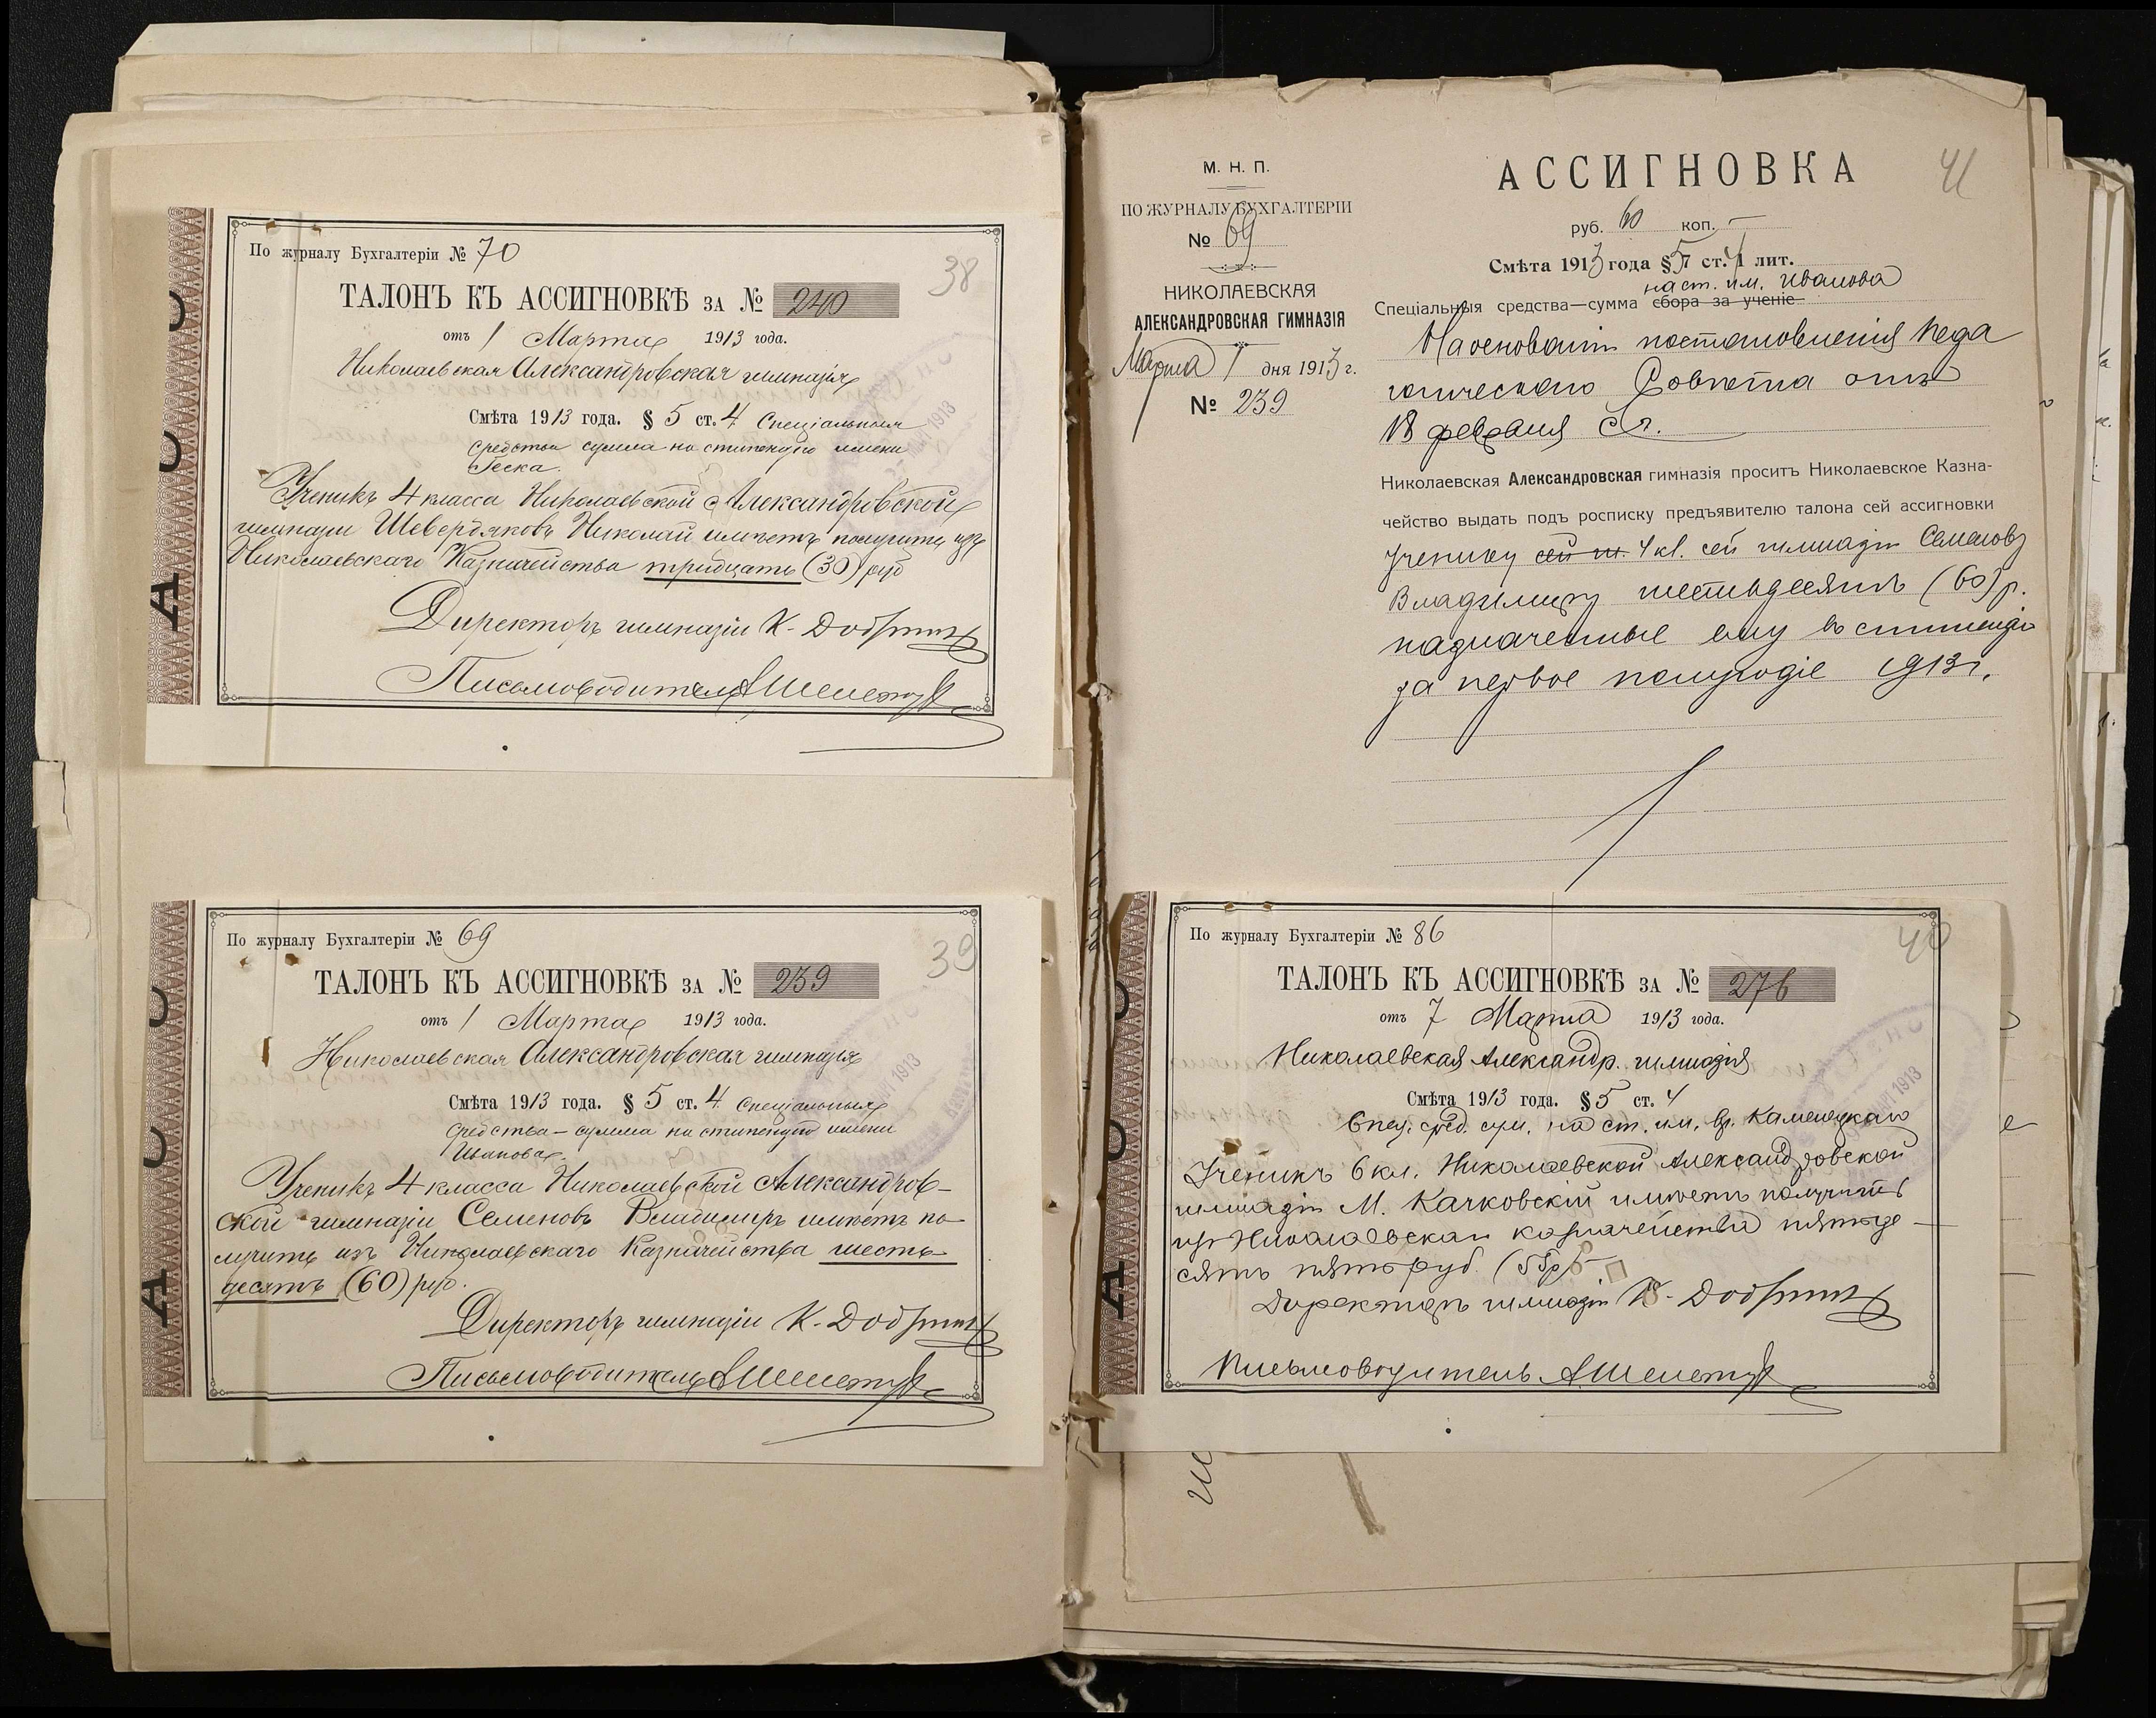 По журналу Бухгалтеріи № 70
38
ТАЛОНЪ КЪ АССИГНОВКѢ ЗА № 240
отъ 1 Марта 1913 года.
Николаевская Александровская гимназія
Смѣта 1913 года. § 5 ст. 4 Спеціальныя
средства сумма на стипендію имени
Геска.
Ученикъ 4 класса Николаевской Александровской
гимназіи Шевердяковъ Николай имѣетъ получить изъ
Николаевскаго Казначейства тридцать (30) руб
Директоръ гимназіи К. Добрин
Письмоводитель
По журналу Бухгалтеріи № 69
39
ТАЛОНЪ КЪ АССИГНОВКѢ ЗА № 239
отъ 1 Марта 1913 года.
Николаевская Александровская гимназія
Смѣта 1913 года. § 5 ст. 4 Спеціальныя
средства – сумма на стипендію имени
Иванова.
Ученикъ 4 класса Николаевской Александров-
ской гимназіи Семеновъ Владимиръ имѣетъ по-
лучить изъ Николаевскаго Казначейства шесть-
десятъ (60) руб.
Директоръ гимназіи К. Добрин
Письмоводитель
М. Н. П.
ПО ЖУРНАЛУ БУХГАЛТЕРІИ
№ 69
НИКОЛАЕВСКАЯ
АЛЕКСАНДРОВСКАЯ ГИМНАЗІЯ
Марта 1 дня 1913 г.
№ 239
АССИГНОВКА
41
руб. 60 коп. —
Смѣта 1913 года § 5 ст. 4 лит.
на ст. им. Иванова
Спеціальныя средства—сумма сбора за ученіе
На основаніи постановленія Педа
гогическаго Совѣта отъ
18 февраля с.г.
Николаевская Александровская гимназія проситъ Николаевское Казна-
чейство выдать подъ росписку предъявителю талона сей ассигновки
ученику сей ги. 4 кл. сей гимназіи Семенову
Владимиру шестьдесятъ (60) р.
назначенные ему въ стипендію
за первое полугодіе 1913 г.
По журналу Бухгалтеріи № 86
40
ТАЛОНЪ КЪ АССИГНОВКѢ ЗА № 276
отъ 7 Марта 1913 года.
Николаевская Александр. гимназія
Смѣта 1913 года. § 5 ст. 4
Спец. сред. сум. на ст. им. бр. Каменецкаго
Ученикъ 6 кл. Николаевской Александровской
гимназіи М. Качковскій имѣетъ получить
изъ Николаевскаго казначейства пятьде-
сятъ пять руб. (55 р.)
Директоръ гимназіи К. Добрин
Письмоводитель